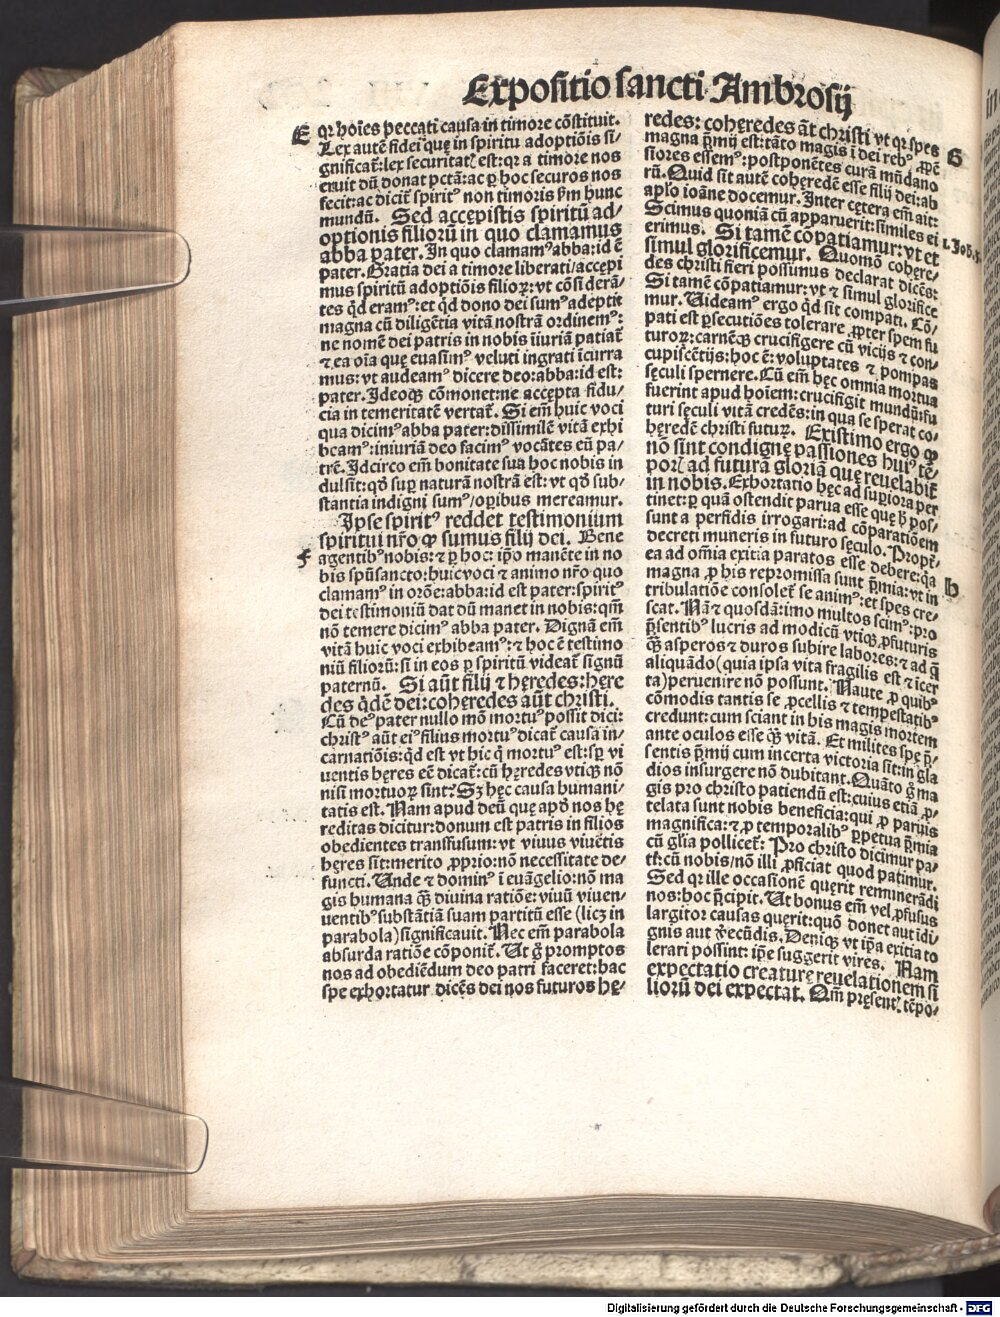 Expositio sancti Ambrosij
E
qꝛ hoīes peccati causa in timore cōstituit.
Lex autē fidei que in spiritu adoptiōis si/
gnificat̄: lex securitatꝭ est: qꝛ a timore nos
eruit dū donat pctā: ac ꝑ hoc securos nos
fecit: ac dicit̄ spiritꝰ non timoris ẜm hunc
mundū. Sed accepistis spiritū ad/
optionis filiorū in quo clamamus
abba pater. In quo clamamꝰ abba: id ē
pater. Gratia dei a timore liberati / accepi
mus spiritū adoptiōis filioꝝ: vt cōsiderā/
tes qd̄ eramꝰ: et qd̄ dono dei sumꝰ adepti:
magna cū diligētia vitā nostrā ordinemꝰ:
ne nomē dei patris in nobis iiuriā patiat̄
⁊ ea oīa que euasimꝰ veluti ingrati īcurra
mus: vt audeamꝰ dicere deo: abba: id est:
pater. Ideoqꝫ cōmonet: ne accepta fidu/
cia in temeritatē vertat̄. Si em̄ huic voci
qua dicimꝰ abba pater: dissimilē vitā exhi
beamꝰ: iniuriā deo facimꝰ vocātes eū pa/
trē. Idcirco em̄ bonitate sua hoc nobis in
dulsit: qd̄ suꝑ naturā nostrā est: vt qd̄ sub/
stantia indigni sumꝰ / oꝑibus mereamur.
Ipse spiritꝰ reddet testimonium
spiritui nr̄o ꝙ sumus filij dei. Bene
F
agentibꝰ nobis: ⁊ ꝑ hoc: ip̄o manēte in no
bis spū sancto: huic voci ⁊ animo nr̄o quo
clamamꝰ in orōe: abba: id est pater: spiritꝰ
dei testimoniū dat dū manet in nobis: qm̄
nō temere dicimꝰ abba pater. Dignā em̄
vitā huic voci exhibeamꝰ: ⁊ hoc ē testimo
niū filiorū: si in eos ꝑ spiritū videat̄ signū
paternū. Si aūt filij ⁊ heredes: here
des qdē dei: coheredes aūt christi.
Cū deꝰ pater nullo mō mortuꝰ possit dici:
christꝰ aūt eiꝰ filius mortuꝰ dicat̄ causa in/
carnatiōis: qd̄ est vt hic q̄ mortuꝰ est: suꝑ vi
uentis heres eē dicat̄: cū heredes vtiqꝫ nō
nisi mortuoꝝ sint? Sꝫ hec causa humani/
tatis est. Nam apud deū que apd̄ nos he
reditas dicitur: donum est patris in filios
obedientes transfusum: vt viuus viuētis
heres sit: merito ꝓprio: nō necessitate de/
functi. Unde ⁊ dominꝰ ī euāgelio: nō ma
gis humana qꝫ̄ diuina ratiōe: viuū viuen/
uentibꝰ substātiā suam partitū esse (licꝫ in
parabola) significauit. Nec em̄ parabola
absurda ratiōe cōponit̄. Ut g̊ promptos
nos ad obediēdum deo patri faceret: hac
spe exhortatur dicēs dei nos futuros he/
redes: coheredes aūt christi vt qꝛ spes
G
magna p̄mij est: tāto magis ī dei rebꝰ ꝓpē
siores essemꝰ: postponētes curā mūdano
rū. Quid sit autē coheredē esse filij dei: ab
apl̄o ioāne docemur. Inter cetera em̄ ait:
Scimus quoniā cū apparuerit: similes ei
1. Joh. 3.
erimus. Si tamē cōpatiamur: vt et
simul glorificemur. Quomō cohere/
des christi fieri possumus declarat dicēs:
Si tamē cōpatiamur: vt ⁊ simul glorifice
mur. Uideamꝰ ergo qd̄ sit compati. Cō/
pati est ꝑsecutiōes tolerare ꝓpter spem fu
turoꝝ: carnēqꝫ crucifigere cū vicijs ⁊ con/
cupiscētijs: hoc ē: voluptates ⁊ pompas
seculi spernere. Cū em̄ hec omnia mortua
fuerint apud hoīem: crucifigit mundū: fu
turi seculi vitā credēs: in qua se sperat co/
heredē christi futuꝝ. Existimo ergo ꝙ
nō sint condigne passiones huiꝰ tē/
porꝭ ad futurā gloriā que reuelabit̄
in nobis. Exhortatio hec ad suꝑiora per
tinet: ꝑ quā ostendit parua esse que h̄ pos/
sunt a perfidis irrogari: ad cōparatiōem
decreti muneris in futuro seculo. Propt̄/
ea ad omīa exitia paratos esse debere: qa
H
magna ꝓ his repromissa sunt p̄mia: vt in
tribulatiōe consolet̄ se animꝰ: et spes cre/
scat. Nā ⁊ quosdā: imo multos scimꝰ: pro
p̄sentibꝰ lucris ad modicū vtiqꝫ ꝓfuturis
qꝫ̄ asperos ⁊ duros subire labores: ⁊ ad q̄
aliquādo (quia ipsa vita fragilis est ⁊ īcer
ta) peruenire nō possunt. Naute ꝓ quibꝰ
cōmodis tantis se ꝓcellis ⁊ tempestatibꝰ
credunt: cum sciant in his magis mortem
ante oculos esse qꝫ̄ vitā. Et milites spe p̄/
sentis p̄mij cum incerta victoria sit: in gla
dios insurgere nō dubitant. Quāto g̊ ma
gis pro christo patiendū est: cuius etiā ꝓ/
telata sunt nobis beneficia: qui ꝓ paruis
magnifica: ⁊ ꝓ temporalibꝰ ꝑpetua p̄mia
cū gl̄ia pollicet̄: Pro christo dicimur pa/
ti: cū nobis / nō illi ꝓficiat quod patimur.
Sed qꝛ ille occasionē querit remunerādi
nos: hoc p̄cipit. Ut bonus em̄ vel ꝓfusus
largitor causas querit: quō donet aut idi/
gnis aut verecūdis. Deniqꝫ vt ip̄a exitia to
lerari possint: ip̄e suggerit vires. Nam
expectatio creature reuelationem fi
liorū dei expectat. Qm̄ presentꝭ tēpo/
Digitalisierung gefördert durch die Deutsche Forschungsgemeinschaft - DFG